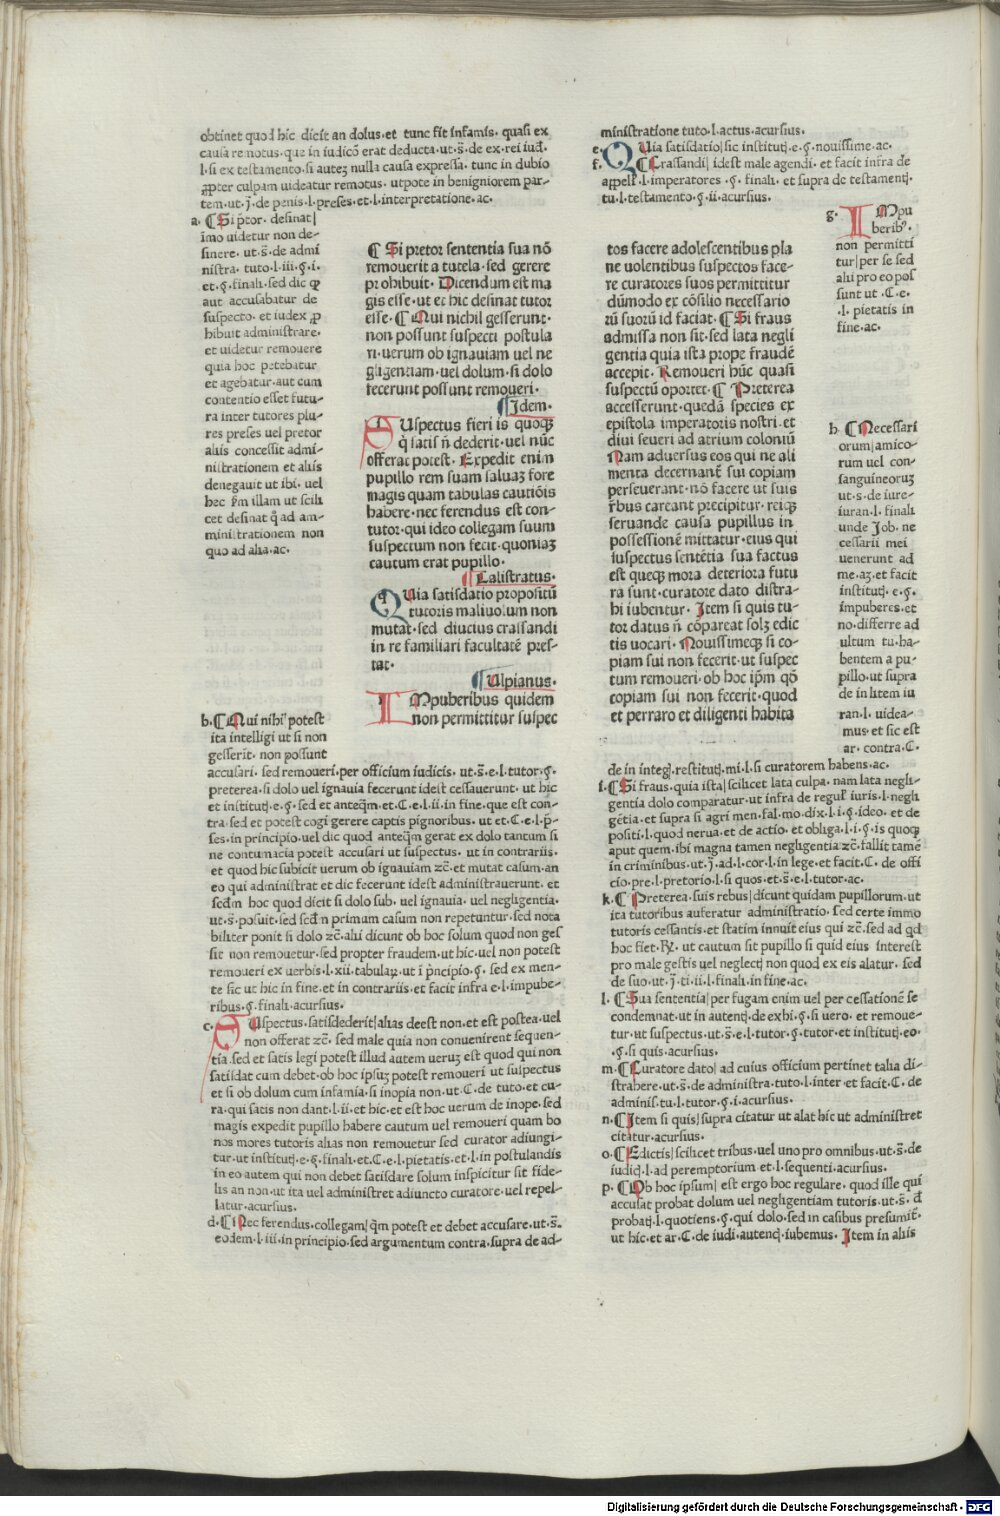 obtinet quod hic dicit an dolus·et tunc fit infamis. quasi ex
causa remotus·que in iudicō erat deducta·ut·s̄·de ex·rei iud̄.
l·si ex testamento·si auteȝ nulla causa expressa· tunc in dubio
ꝓpter culpam uideatur remotus· utpote in benigniorem par-
tem·ut·j̄·de penis·l·preses·et·l·interpretatione·ac.
a·¶Si p̄tor· desinat|
imo uidetur non de-
sinere· ut·s̄·de admi
nistra· tuto·l·iii·§·i·
et·§·finali·sed dic ꝙ
aut accusabatur de
suspecto· et iudex ꝓ
hibuit administrare·
et uidetur remouere
quia hoc petebatur
et agebatur·aut cum
contentio esset futu-
ra inter tutores plu-
res preses uel pretor
aliis concessit admi-
nistrationem et aliis
denegauit ut ibi· uel
hec p̄m illam ut scili
cet desinat q̊ ad am-
ministrationem non
quo ad alia·ac.
¶ Si pretor sententia sua nō
remouerit a tutela·sed gerere
prohibuit· Dicendum est ma
gis esse·ut et hic desinat tutor
esse·¶ Qui nichil gesserunt·
non possunt suspecti postula
ri·uerum ob ignauiam uel ne
gligentiam·uel dolum·si dolo
fecerunt possunt remoueri·
¶Idem·
SUspectus fieri is quoqꝫ
q̇ satis n̄ dederit·uel nūc
offerat potest· Expedit enim
pupillo rem suam saluaȝ fore
magis quam tabulas cautiōis
habere·nec ferendus est con-
tutor·qui ideo collegam suum
suspectum non fecit·quoniaȝ
cautum erat pupillo·
¶Calistratus·
QUia satisdatio propositū
tutoris maliuolum non
mutat·sed diucius crassandi
in re familiari facultatē pres-
tat·
¶Ulpianus·
IMpuberibus quidem
non permittitur suspec
b·¶Qui nihil potest
ita intelligi ut si non
gesserit· non possunt
accusari· sed remoueri·per officium iudicis· ut·s̄·e·l·tutor·§·
preterea·si dolo uel ignauia fecerunt idest cessauerunt· ut hic
et institutj·e·§·sed et anteqm̄·et·C·e·l·ii·in fine·que est con-
tra·sed et potest cogi gerere captis pignoribus· ut et·C·e·l·p̄-
ses·in principio·uel dic quod anteqm̄ gerat ex dolo tantum si
ne contumacia potest accusari ut suspectus· ut in contrariis·
et quod hic subicit uerum ob ignauiam ⁊c̄·et mutat casum·an
eo qui administrat et dic fecerunt idest administrauerunt· et
scd̄m hoc quod dicit si dolo sub· uel ignauia· uel negligentia·
ut·s̄·posuit·sed scd̄m primum casum non repetuntur·sed nota
biliter ponit si dolo ⁊c̄·alii dicunt ob hoc solum quod non ges
sit non remouetur·sed propter fraudem·ut hic·uel non potest
remoueri ex uerbis·l·xii·tabulaꝝ·ut i p̄ncipio·§· sed ex men-
te sic ut hic in fine·et in contrariis·et facit infra e·l·impube-
ribus·§·finali·acursius·
c·SUspectus·satisdederit|alias deest non·et est postea·uel
non offerat ⁊c̄· sed male quia non conuenirent sequen-
tia·sed et satis legi potest illud autem ueruȝ est quod qui non
satisdat cum debet·ob hoc ipsuȝ potest remoueri ut suspectus
et si ob dolum cum infamia·si inopia non·ut·C·de tuto·et cu-
ra·qui satis non dant·l·ii·et hic·et est hoc uerum de inope·sed
magis expedit pupillo habere cautum uel remoueri quam bo
nos mores tutoris alias non remouetur sed curator adiungi-
tur·ut institutj·e·§·finali·et·C·e·l·pietatis·et·l·in postulandis
in eo autem qui non debet satisdare solum inspicitur sit fide-
lis an non·ut ita uel administret adiuncto curatore·uel repel-
latur·acursius·
d·¶Nec ferendus·collegam|qm̄ potest et debet accusare·ut·s̄·
eodem·l·iii·in principio·sed argumentum contra·supra de ad-
ministratione tuto·l·actus·acursius·
e·QUia satisdatio|sic institutj·e·§·nouissime·ac·
f·¶Crassandi|idest male agendi· et facit infra de
appell̄·l·imperatores·§·finali· et supra de testamentj·
tu·l·testamento·§·ii·acursius·
g·IMpu
berib⁹·
non permitti
tur|per se sed
alii pro eo pos
sunt ut·C·e·
·l· pietatis in
fine·ac·
tos facere adolescentibus pla
ne uolentibus suspectos face-
re curatores suos permittitur
dūmodo ex cōsilio necessario
rū suorū id faciat· ¶Si fraus
admissa non sit·sed lata negli
gentia quia ista prope fraudē
accepit· Remoueri hūc quasi
suspectū oportet·¶ Preterea
accesserunt·quedā species ex
epistola imperatoris nostri·et
diui seueri ad atrium coloniū
Nam aduersus eos qui ne ali
menta decernant̄ sui copiam
perseuerant·nō facere ut suis
rebus careant precipitur· reiqꝫ
seruande causa pupillus in
possessionē mittatur·eius qui
suspectus sentētia sua factus
est queqꝫ mora deteriora futu
ra sunt·curatore dato distra-
hi iubentur· Item si quis tu-
tor datus n̄ cōpareat solȝ edic
tis uocari· Nouissimeqꝫ si co-
piam sui non fecerit·ut suspec
tum remoueri·ob hoc ipm̄ qō
copiam sui non fecerit·quod
et perraro et diligenti habita
h·¶Necessari
orum|amico-
rum uel con-
sanguineoruȝ
ut·s·de iure-
iuran·l·finali
unde Job· ne
cessarii mei
uenerunt ad
me·aȝ·et facit
institutj·e·§·
impuberes·et
no·differre ad
ultum tu·ha-
bentem a pu-
pillo·ut supra
de in litem iu
ran·l· uidea-
mus·et sic est
ar· contra·C·
de in integ̣·restitutj·mi·l·si curatorem habens·ac·
i·¶Si fraus·quia ista|scilicet lata culpa· nam lata negli-
gentia dolo comparatur·ut infra de regul̄ iuris·l·negli
gētia·et supra si agri men·fal·mo·dix·l·i·§·ideo· et de
positi·l·quod nerua·et de actio· et obliga·l·i·§·is quoqꝫ
aput quem·ibi magna tamen negligentia·⁊c̄·fallit tamē
in criminibus·ut·j̄·ad·l·cor·l·in lege·et facit·C· de offi
cio·pre·l·pretorio·l·si quos·et·s̄·e·l·tutor·ac·
k·¶Preterea·suis rebus|dicunt quidam pupillorum·ut
ita tutoribus auferatur administratio· sed certe immo
tutoris cessantis·et statim innuit eius qui ⁊c̄·sed ad qd
hoc fiet·℞· ut cautum sit pupillo si quid eius interest
pro male gestis uel neglectj non quod ex eis alatur· sed
de suo·ut·j̄·ti·ii·l·finali·in fine·ac·
l·¶Sua sententia|per fugam enim uel per cessationē se
condemnat·ut in autentj·de exhi·§·si uero· et remoue-
tur·ut suspectus·ut·s̄·e·l·tutor·§·tutor·et institutj·eo·
·§·si quis·acursius·
m·¶Curatore dato|ad cuius officium pertinet talia di-
strahere·ut·s̄·de administra·tuto·l·inter·et facit·C·de
adminis·tu·l·tutor·§·i·acursius·
n·¶Item si quis|supra citatur ut alat hic ut administret
citatur·acursius·
o·¶Edictis|scilicet tribus·uel uno pro omnibus·ut·s̄·de
iudiq·l·ad peremptorium et·l·sequenti·acursius·
p·¶Ob hoc ipsum| est ergo hoc regulare· quod ille qui
accusat probat dolum uel negligentiam tutoris·ut·s̄· d̄
probatj·l·quotiens·§·qui dolo·sed in casibus presumit̄·
ut hic·et ar·C·de iudi·autenq·iubemus· Item in aliis
Digitalisierung gefördert durch die Deutsche Forschungsgemeinschaft - DFG